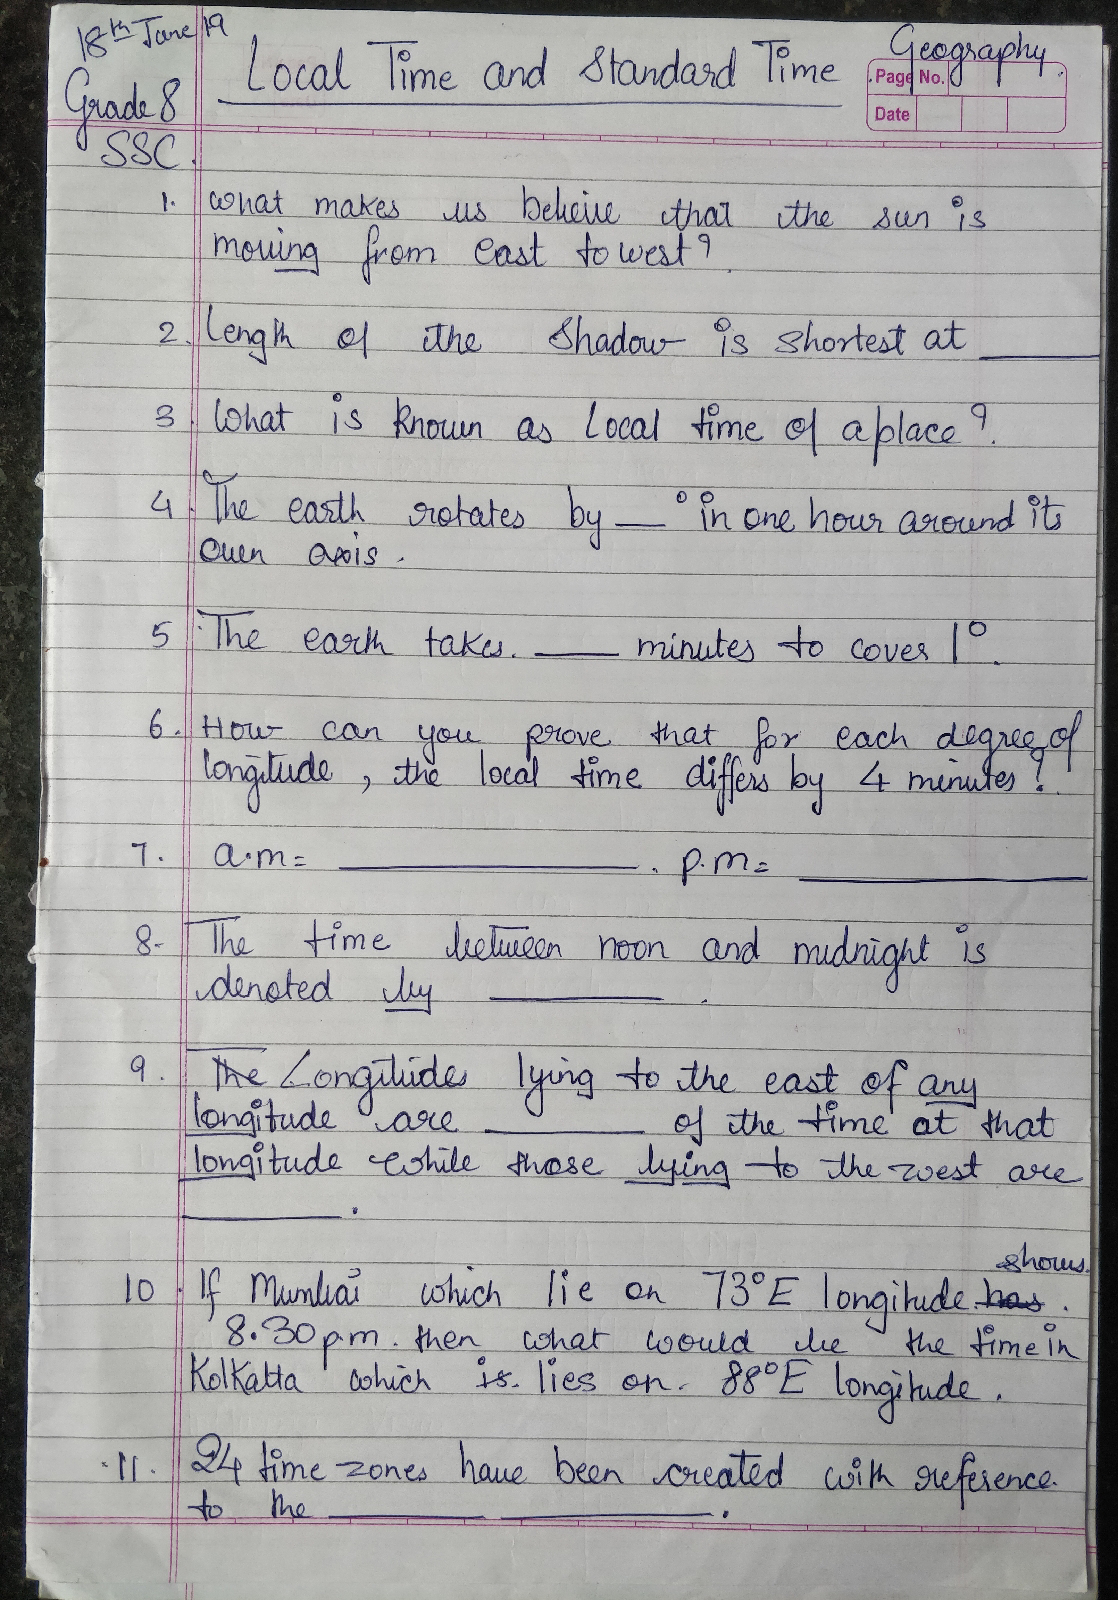 18th June 19
Geography.
Local Time and Standard Time
Page No.
Date
Grade 8
SSC.
1. What makes us believe that the sun is
moving from east to west?
2. Length of the shadow is shortest at ______
3 What is known as local time of a place?
4 The earth rotates by __° in one hour around its
own axis.
5 The earth takes. ____ minutes to cover 1°.
6. How can you prove that for each degree of
longitude, the local time differs by 4 minutes?
7. a.m= ____________. p.m= ____________
8- The time between noon and midnight is
denoted by ________.
9. The Longitudes lying to the east of any
longitude are ________ of the time at that
longitude while those lying to the west are
________.
10 If Mumbai which lie on 73°E longitude has shows.
8.30 pm. then what would be the time in
Kolkatta which is lies on. 88°E longitude.
11. 24 time zones have been created with reference
to the ________ ________.